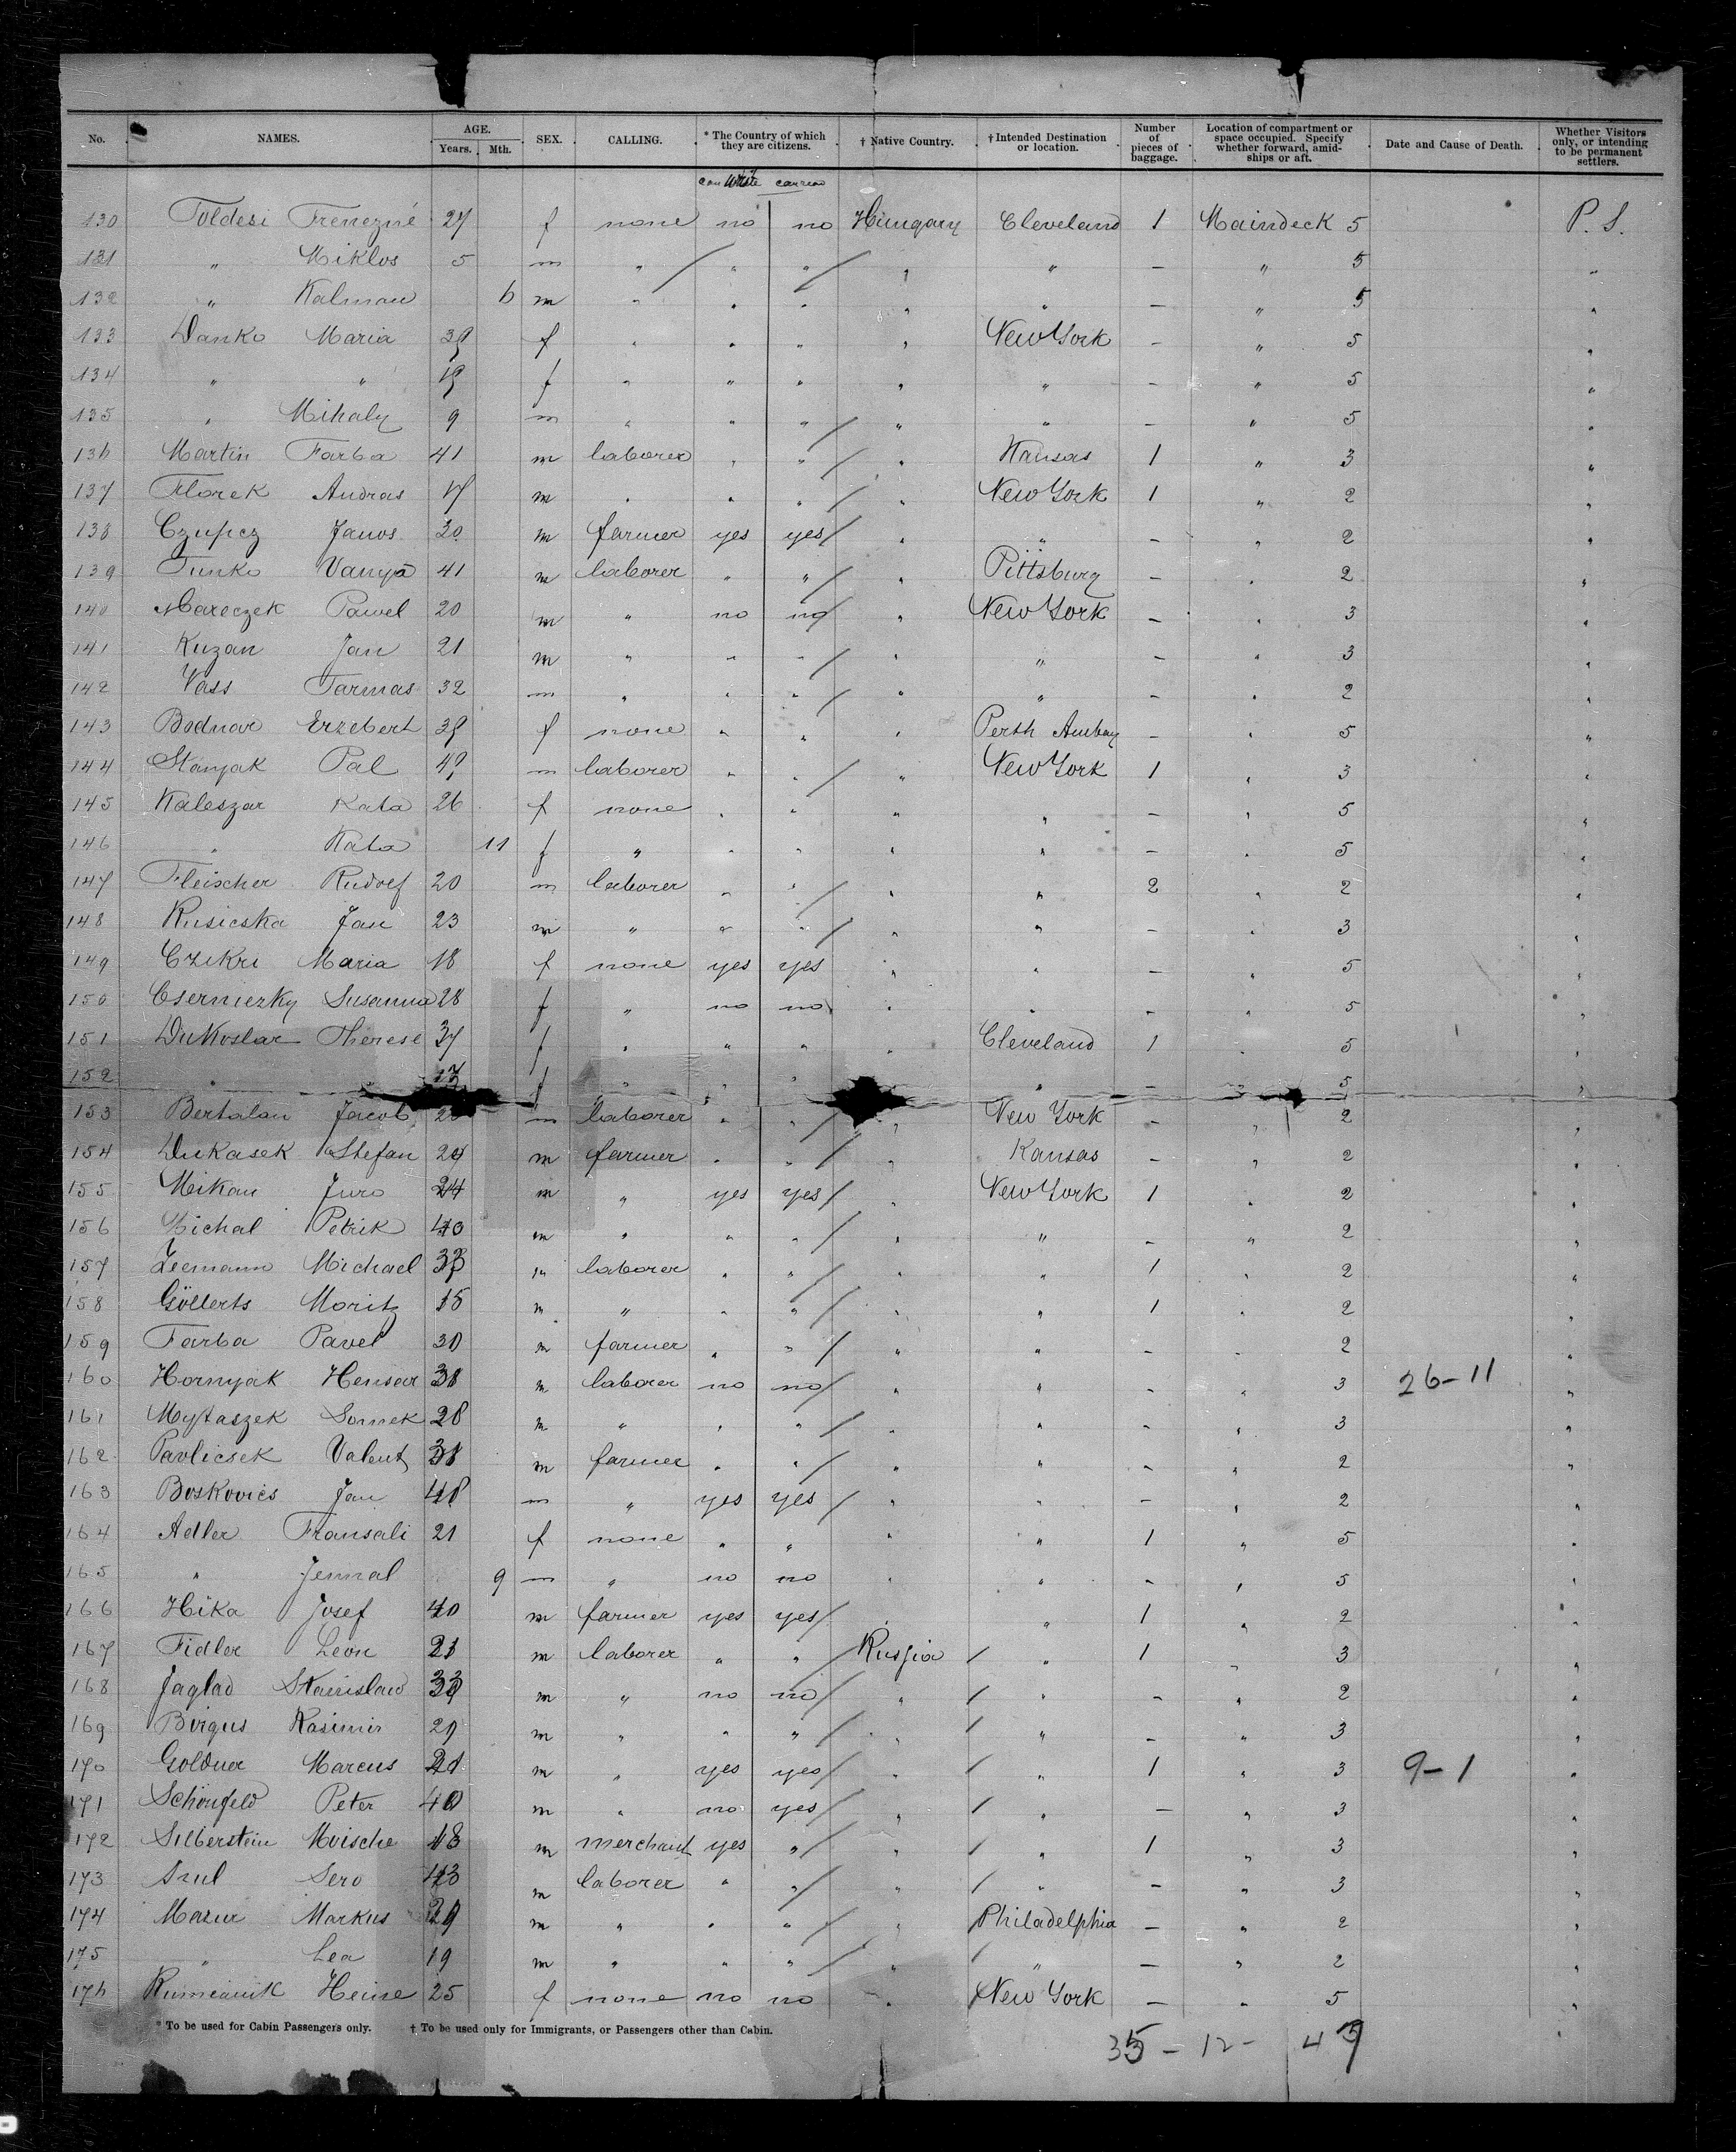 No. NAMES. AGE. Years. Mth. SEX. CALLING. * The Country of which they are citizens. † Native Country. † Intended Destination or location. Number of pieces of baggage. Location of compartment or space occupied. Specify whether forward, amidships or aft. Date and Cause of Death. Whether Visitors only, or intending to be permanent settlers.
can write can read
130 Foldesi Ferenczné 27 f none no no Hungary Cleveland 1 Maindeck 5 P. S.
131 " Miklos 5 m " " " " " — " 5 "
132 " Kalman 6 m " " " " " — " 5 "
133 Danko Maria f " " " " New York — " 5 "
134 " " 19 f " " " " " — " 5 "
135 " Mihaly 9 m " " " " " — " 5 "
136 Martin Farba 41 m laborer " " " Kansas 1 " 3 "
137 Florek Andras 17 m " " " " New York 1 " 2 "
138 Czupcz Janos 30 m farmer yes yes " " — " 2 "
139 Tunko Vanya 41 m laborer " " " Pittsburg — " 2 "
140 Mareczek Pawel 20 m " no no " New York — " 3 "
141 Kuzan Jan 21 m " " " " " — " 3 "
142 Vass Tarmas 32 m " " " " " — " 2 "
143 Bodnar Erzebert f none " " " Perth Amboy — " 5 "
144 Stanyak Pal m laborer " " " New York 1 " 3 "
145 Kaleszar Kata 26 f none " " " " — " 5 "
146 " Kata 11 f " " " " " — " 5 "
147 Fleischer Rudolf 20 m laborer " " " " 2 " 2 "
148 Rusicska Jan 23 m " " " " " — " 3 "
149 Czikri Maria 18 f none yes yes " " — " 5 "
150 Cserniczky Susanna 28 f " no no " " — " 5 "
151 Dukoslar Therese 37 f " " " " Cleveland 1 " 5 "
152 " " f " " " " " — " 5 "
153 Bertalan Jacob m laborer " " " New York — " 2 "
154 Dukasek Stefan m farmer " " " Kansas — " 2 "
155 Mikan Juro 24 m " yes yes " New York 1 " 2 "
156 Michal Petrik 40 m " " " " " — " 2 "
157 Zeemann Michael m laborer " " " " 1 " 2 "
158 Göllerts Moritz 15 m " " " " " 1 " 2 "
159 Farba Pavel 30 m farmer " " " " — " 2 "
160 Hornyak Hensar 38 m laborer no no " " — " 3 26-11 "
161 Mytaszek Somek 28 m " " " " " — " 3 "
162 Pavlicsek Valent m farmer " " " " — " 2 "
163 Boskovics Jan 48 m " yes yes " " — " 2 "
164 Adler Fransali 21 f none " " " " 1 " 5 "
165 " Jennal 9 m " no no " " — " 5 "
166 Hika Josef 40 m farmer yes yes " " 1 " 2 "
167 Fidler Leon 21 m laborer " " Russia " 1 " 3 "
168 Jaglad Stanislaw m " no no " " — " 2 "
169 Birgus Kasimir m " " " " " — " 3 "
170 Goldner Marcus m " yes yes " " 1 " 3 9-1 "
171 Schönfeld Peter 40 m " no yes " " — " 3 "
172 Silberstein Moische 18 m merchant yes " " " 1 " 3 "
173 Sero 43 m laborer " " " " — " 3 "
174 Mazur Markus m " " " " Philadelphia — " 2 "
175 " Lea 19 m " " " " " — " 2 "
176 Rumianik Heine 25 f none no no " New York — " 5 "
* To be used for Cabin Passengers only. † To be used only for Immigrants, or Passengers other than Cabin.
35 - 12 - 47